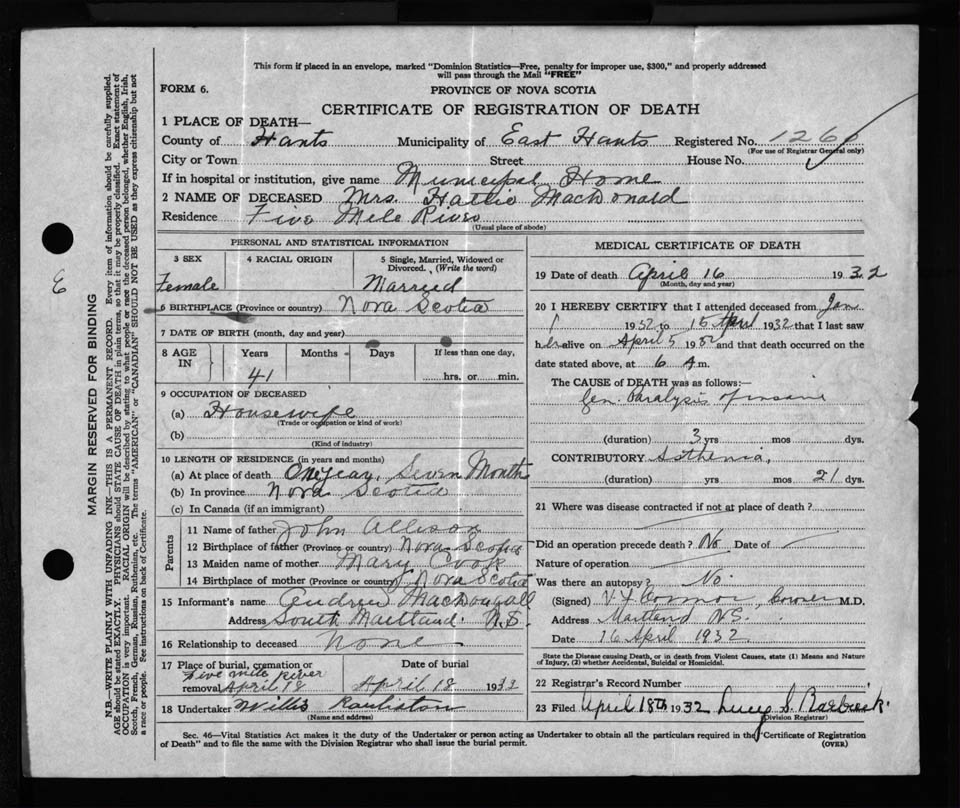 This form if placed in an envelope, marked "Dominion Statistics—Free, penalty for improper use, $300," and properly addressed
will pass through the Mail "FREE"
FORM 6.
PROVINCE OF NOVA SCOTIA
CERTIFICATE OF REGISTRATION OF DEATH
1 PLACE OF DEATH—
County of Hants Municipality of East Hants Registered No. 1260
(For use of Registrar General only)
City or Town Street House No.
If in hospital or institution, give name Municipal Home
2 NAME OF DECEASED Mrs. Hallie MacDonald
Residence Five Mile River
(Usual place of abode)
PERSONAL AND STATISTICAL INFORMATION
3 SEX
Female
4 RACIAL ORIGIN
5 Single, Married, Widowed or
Divorced. (Write the word)
Married
6 BIRTHPLACE (Province or country) Nova Scotia
7 DATE OF BIRTH (month, day and year)
8 AGE IN Years Months Days If less than one day,
41 hrs. or min.
9 OCCUPATION OF DECEASED
(a) Housewife
(Trade or occupation or kind of work)
(b)
(Kind of industry)
10 LENGTH OF RESIDENCE (in years and months)
(a) At place of death One year, Seven Months
(b) In province Nova Scotia
(c) In Canada (if an immigrant)
Parents
11 Name of father John Allison
12 Birthplace of father (Province or country) Nova Scotia
13 Maiden name of mother Mary Cook
14 Birthplace of mother (Province or country) Nova Scotia
15 Informant's name Andrew MacDougall
Address South Maitland. N.S.
16 Relationship to deceased None
17 Place of burial, cremation or
Five mile River
removal April 18
Date of burial
April 18 1933
18 Undertaker Willis
(Name and address)
MEDICAL CERTIFICATE OF DEATH
19 Date of death April 16 1932
(Month, day and year)
20 I HEREBY CERTIFY that I attended deceased from Jan
1 1932 to 15 April 1932 that I last saw
her alive on April 5 1932 and that death occurred on the
date stated above, at 6 A m.
The CAUSE OF DEATH was as follows:—
Gen. Paralysis of insane
(duration) 3 yrs mos dys.
CONTRIBUTORY Asthenia,
(duration) yrs mos 21 dys.
21 Where was disease contracted if not at place of death?
Did an operation precede death? No Date of
Nature of operation
Was there an autopsy? No
(Signed) Coroner M.D.
Address Maitland N.S.
Date 16 April 1932
State the Disease causing Death, or in death from Violent Causes, state (1) Means and Nature
of Injury, (2) whether Accidental, Suicidal or Homicidal.
22 Registrar's Record Number
23 Filed April 18th 1932 Lucy S.
(Division Registrar)
Sec. 46—Vital Statistics Act makes it the duty of the Undertaker or person acting as Undertaker to obtain all the particulars required in the "Certificate of Registration
of Death" and to file the same with the Division Registrar who shall issue the burial permit.
(OVER)
MARGIN RESERVED FOR BINDING
N.B.—WRITE PLAINLY WITH UNFADING INK—THIS IS A PERMANENT RECORD. Every item of information should be carefully supplied.
AGE should be stated EXACTLY. PHYSICIANS should STATE CAUSE OF DEATH in plain terms, so that it may be properly classified. Exact statement of
OCCUPATION is very important. RACIAL ORIGIN will be described by stating to what people or race the deceased person belonged, whether English, Irish,
Scotch, French, German, Russian, Ruthenian, etc. The terms "AMERICAN" or "CANADIAN" SHOULD NOT BE USED as they express citizenship but not
a race or people. See instructions on back of Certificate.